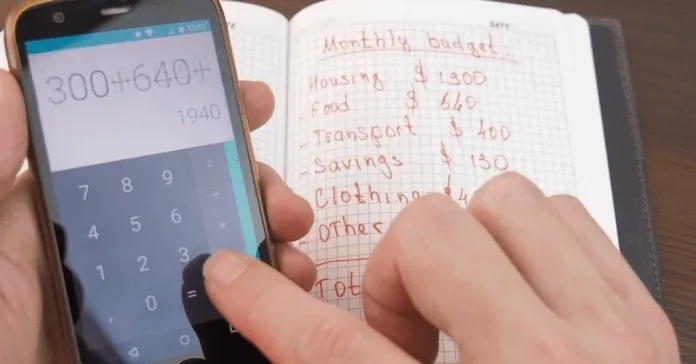 300+640+
1940
7 8 9
÷
4 5 6
×
1 2 3
. 0 =
DATE
Monthly budget
Housing $ 1300
- Food $ 640
- Transport $ 400
- Savings $ 130
Clothing $4
- OTher
Tot